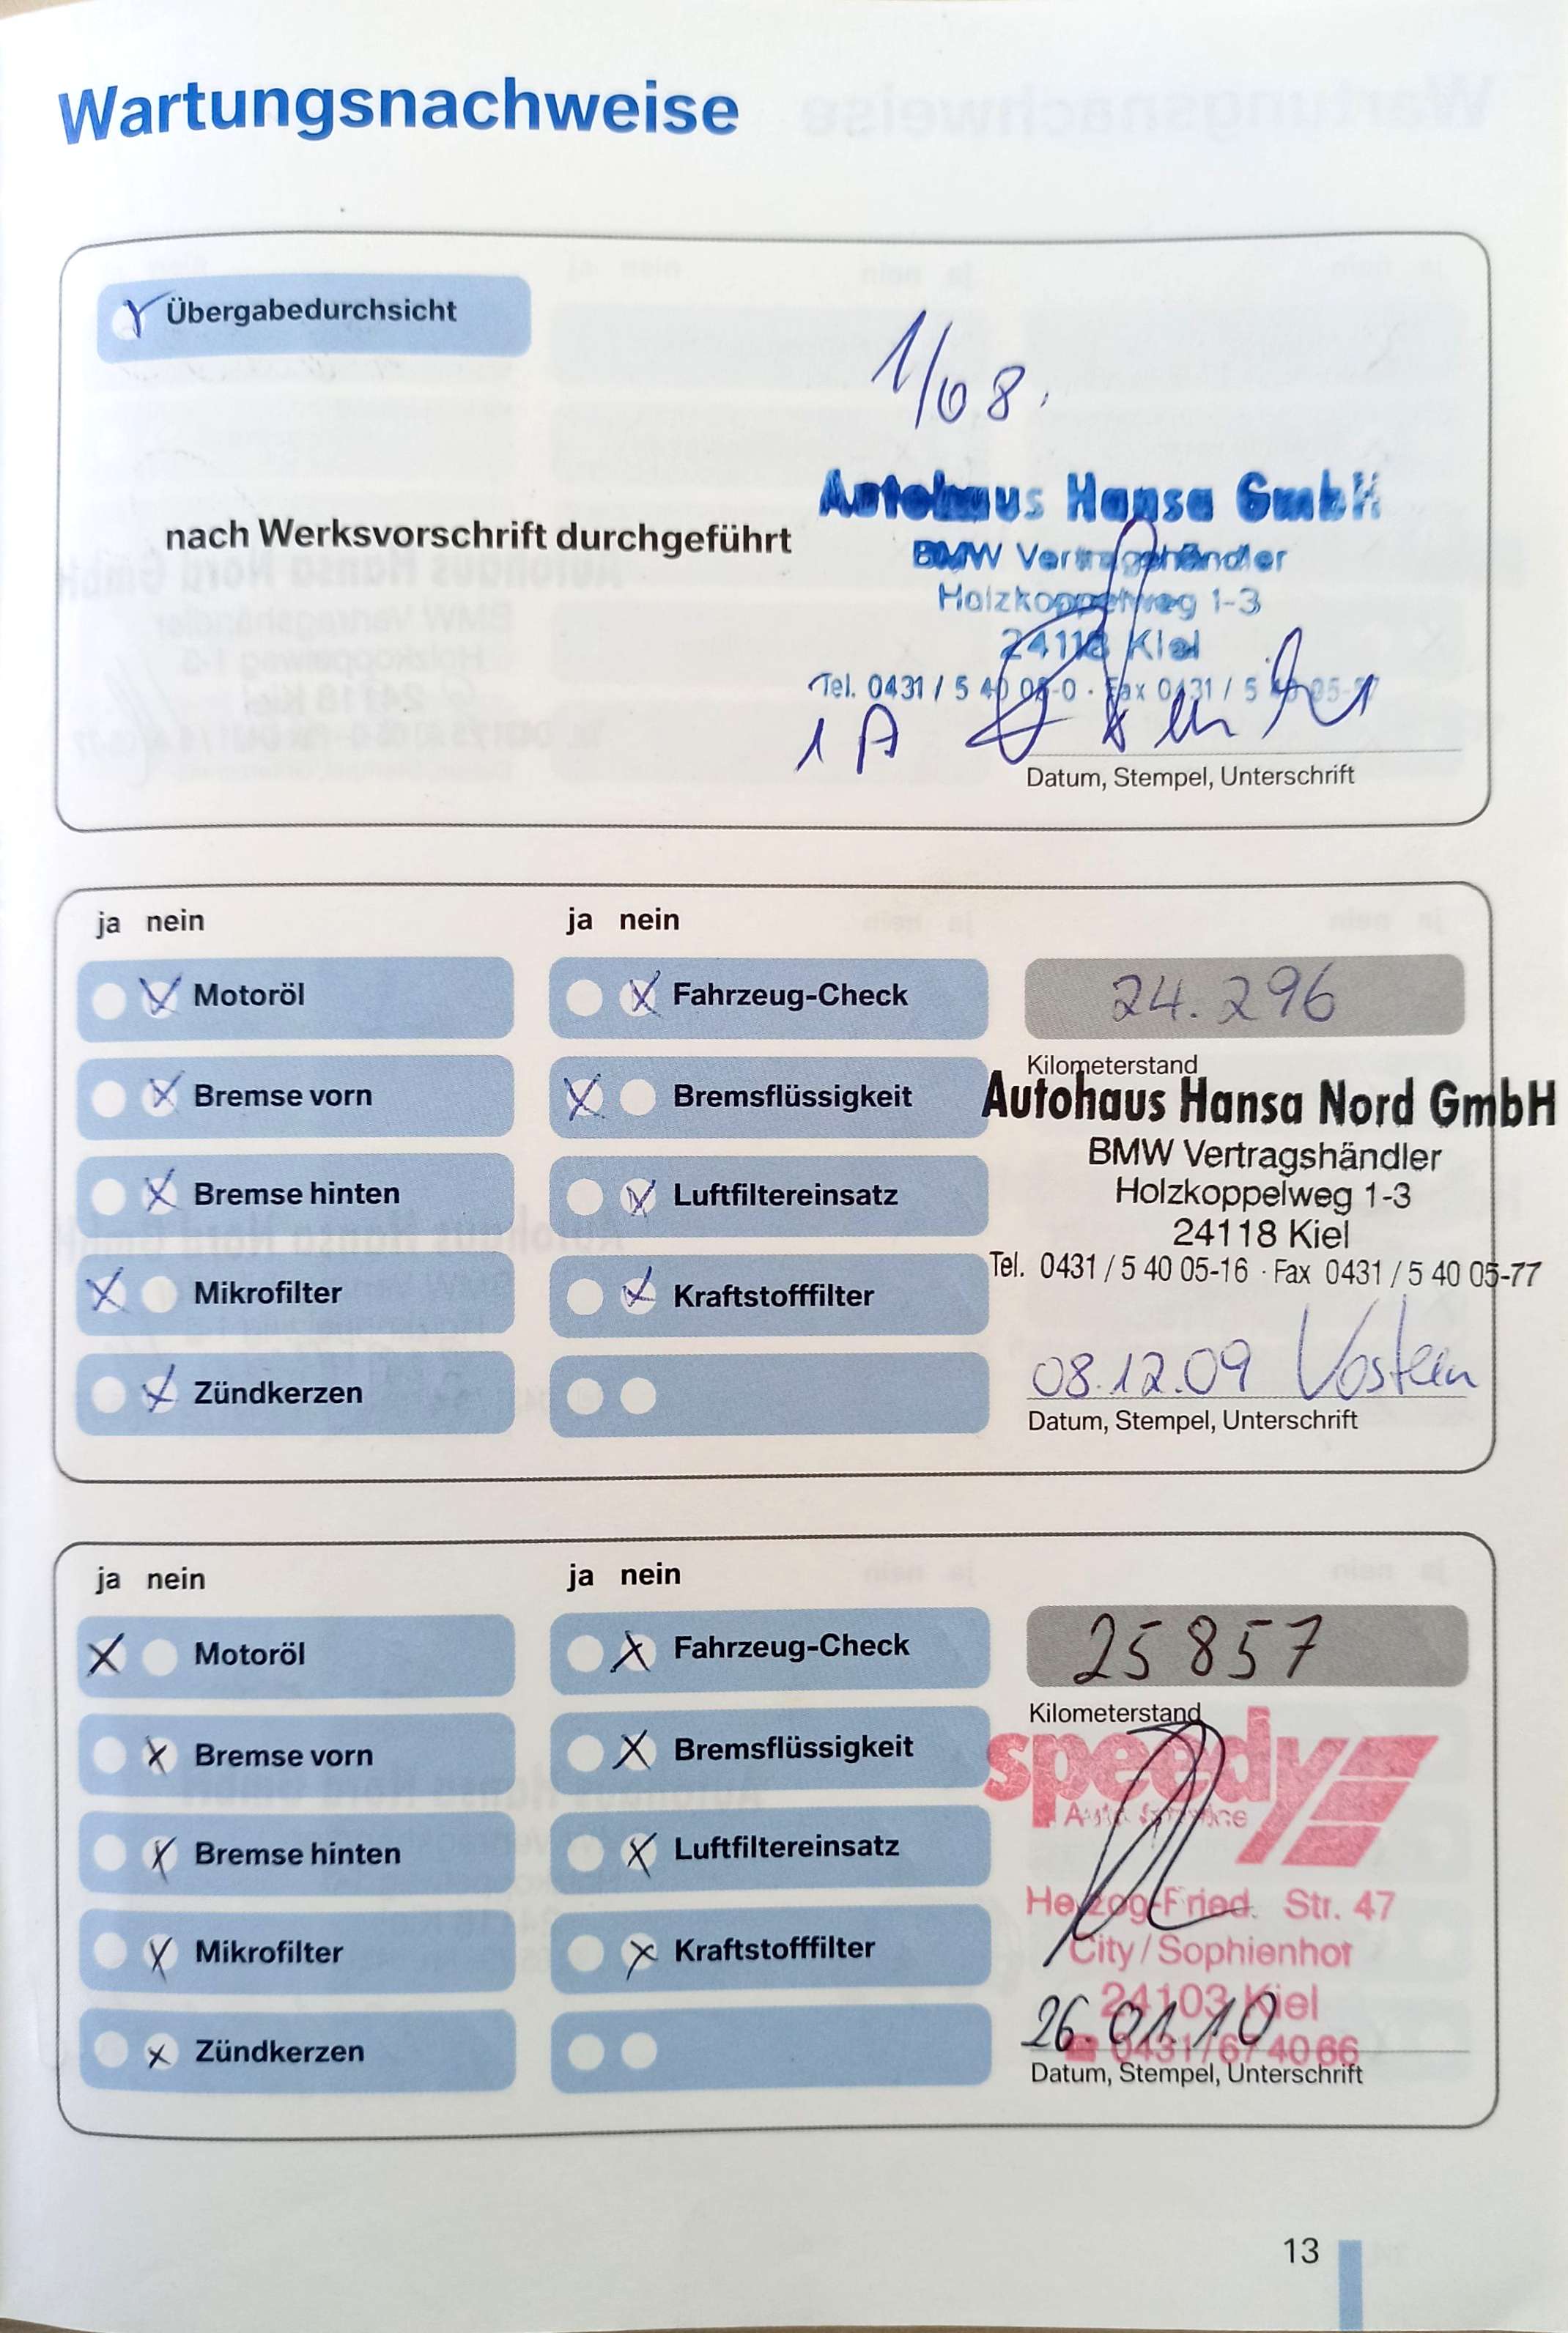 Wartungsnachweise
Übergabedurchsicht
1/08.
nach Werksvorschrift durchgeführt
Autohaus Hansa GmbH
BMW Vertragshändler
Holzkoppelweg 1-3
24118 Kiel
Tel. 0431 / 5 40 05-0 · Fax 0431 / 5 40 05-
1A
Datum, Stempel, Unterschrift
ja nein
Motoröl
Bremse vorn
Bremse hinten
Mikrofilter
Zündkerzen
ja nein
Fahrzeug-Check
Bremsflüssigkeit
Luftfiltereinsatz
Kraftstofffilter
24.296
Kilometerstand
Autohaus Hansa Nord GmbH
BMW Vertragshändler
Holzkoppelweg 1-3
24118 Kiel
Tel. 0431 / 5 40 05-16 · Fax 0431 / 5 40 05-77
08.12.09
Datum, Stempel, Unterschrift
ja nein
Motoröl
Bremse vorn
Bremse hinten
Mikrofilter
Zündkerzen
ja nein
Fahrzeug-Check
Bremsflüssigkeit
Luftfiltereinsatz
Kraftstofffilter
25857
Kilometerstand
speedy
Auto Service
Herzog-Fried. Str. 47
City/Sophienhof
24103 Kiel
26.01.10
0431/674066
Datum, Stempel, Unterschrift
13